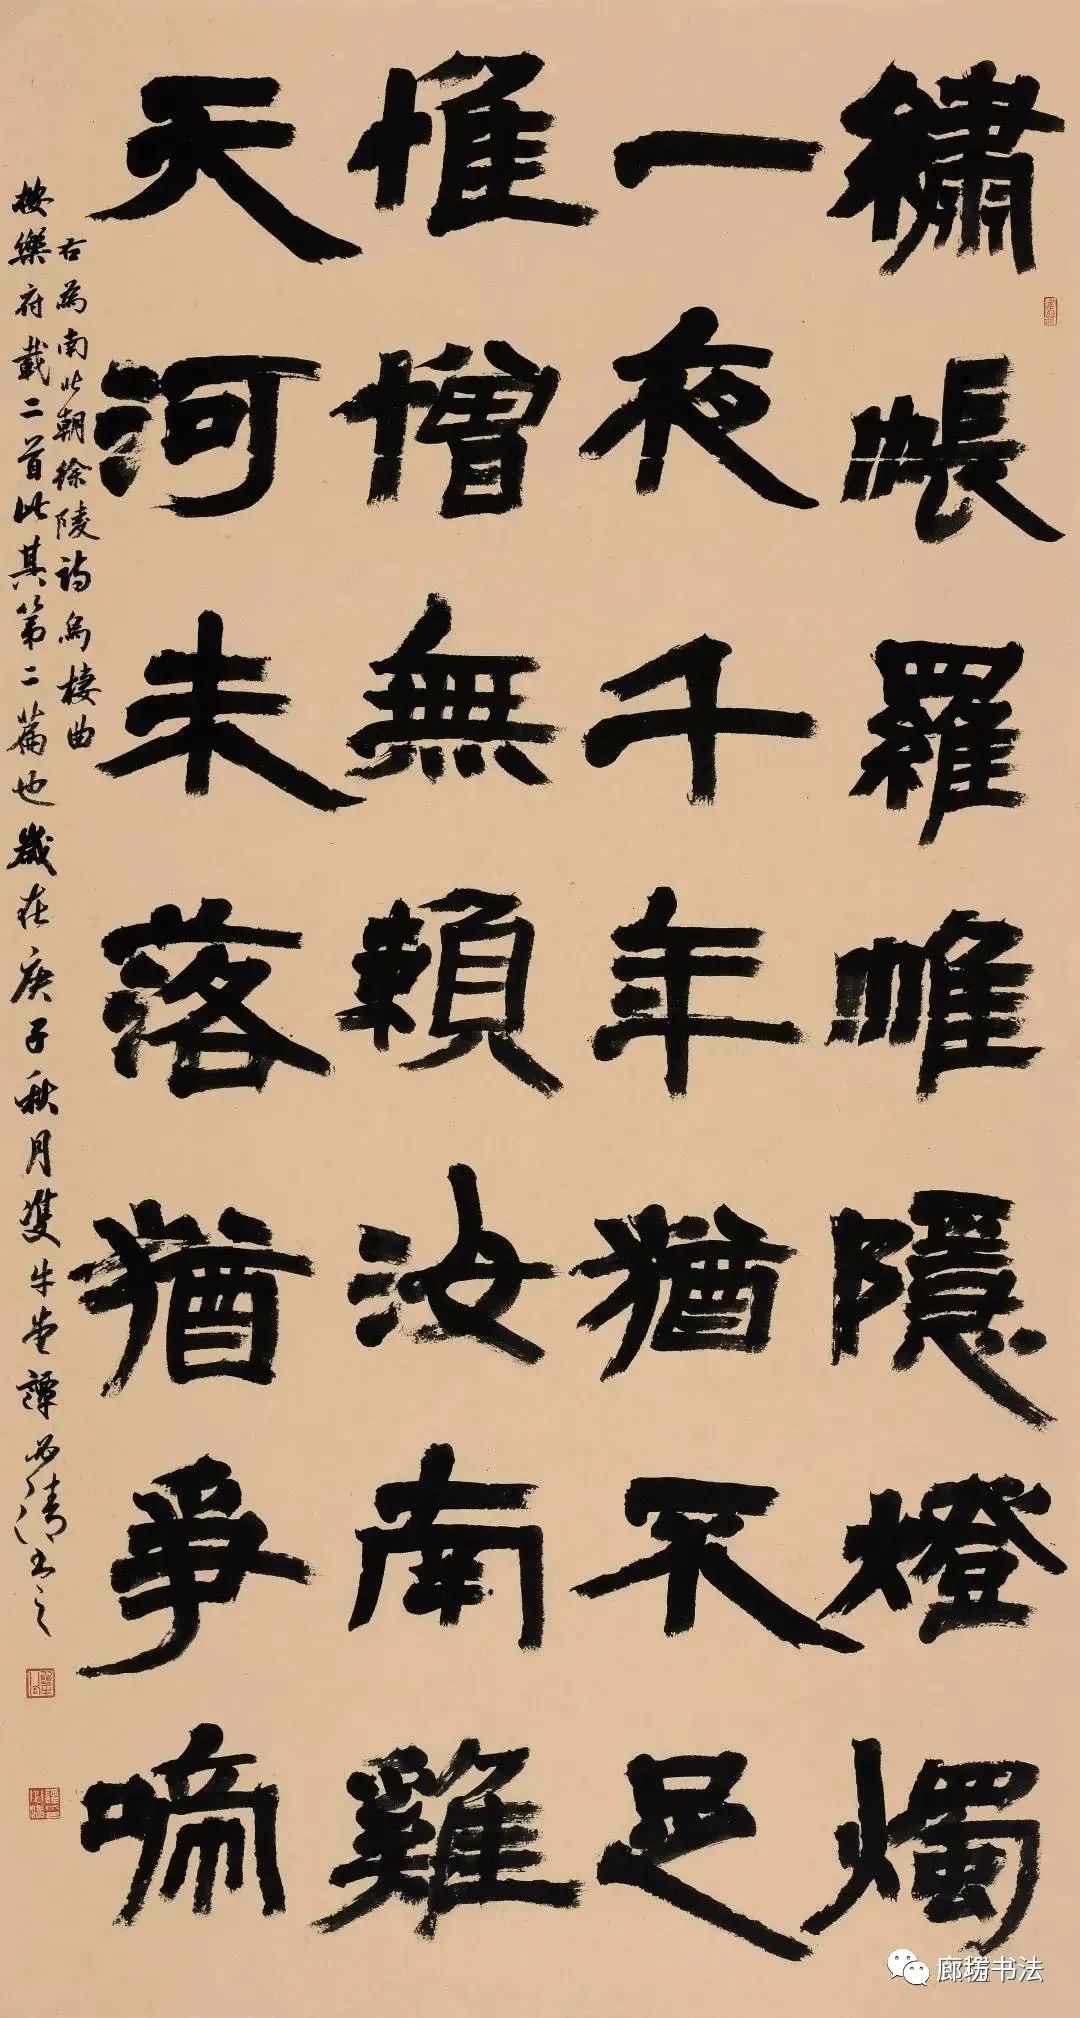 繡帳羅帷隱燈燭
一夜千年猶不足
惟憎無賴汝南雞
天河未落猶爭啼
右為南北朝徐陵詩烏棲曲
按樂府載二首此其第二篇也歲在庚子秋月雙牛堂譚必清書之
廊瑎书法